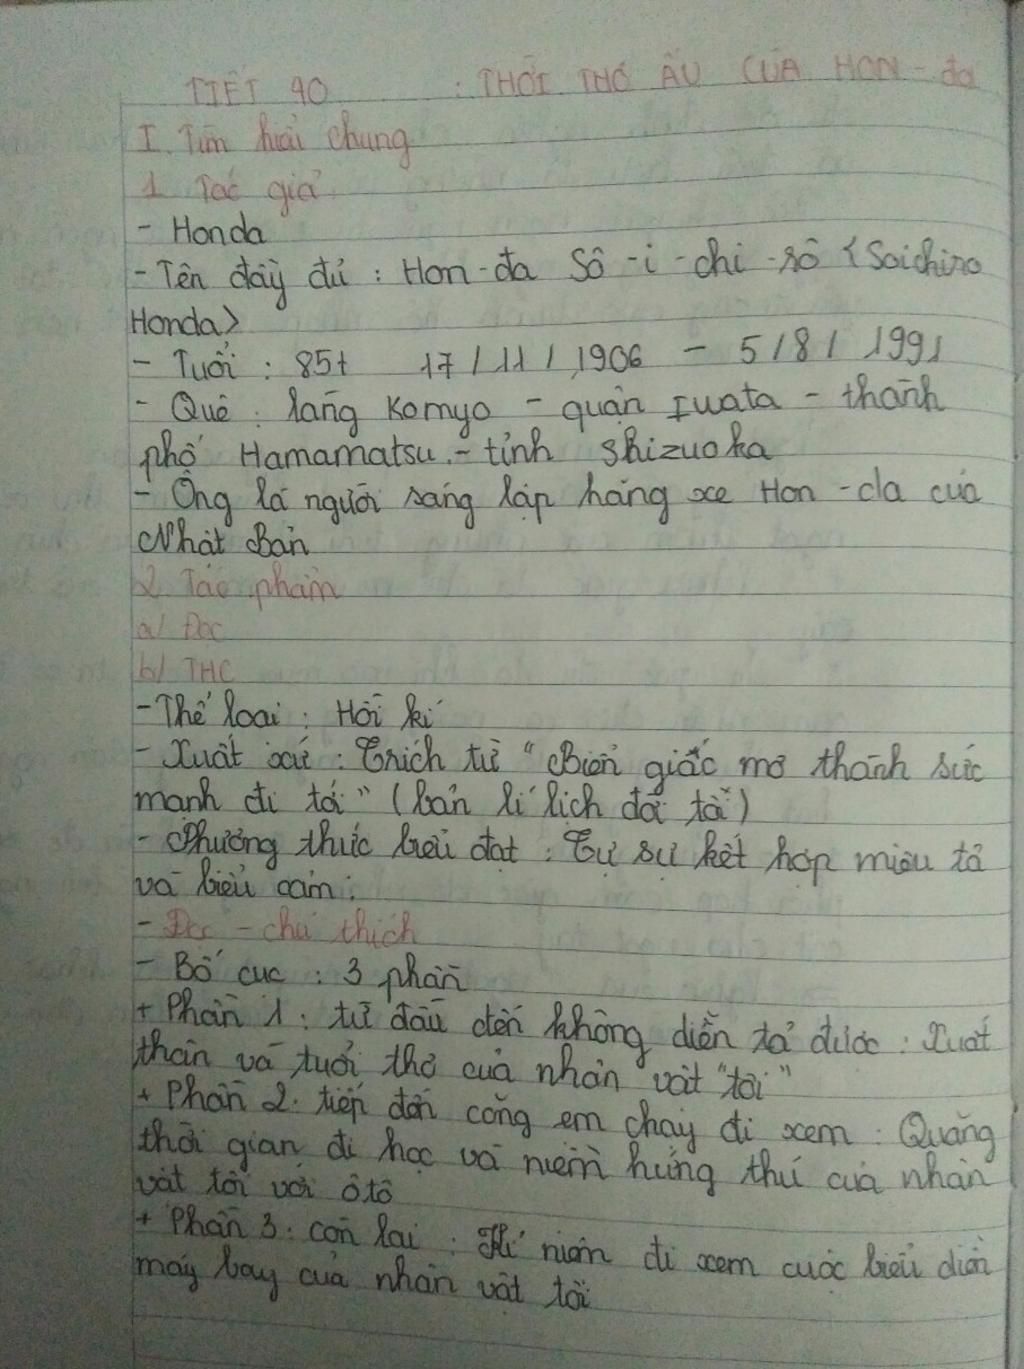 TIẾT 90 : THỜI THƠ ẤU CỦA HON-đa
I. Tìm hiểu chung
1. Tác giả
- Honda
- Tên đầy đủ : Hon-đa Sô-i-chi-rô <Soichiro
Honda>
- Tuổi : 85t 17/11/1906 - 5/8/1991
- Quê : làng Komyo - quận Iwata - thành
phố Hamamatsu - tỉnh Shizuoka
- Ông là người sáng lập hãng xe Hon-da của
Nhật Bản
2. Tác phẩm
a/ Đọc
b/ THC
- Thể loại : Hồi kí
- Xuất xứ : Trích từ "Biến giấc mơ thành sức
mạnh đi tới" (bản lí lịch đời tôi)
- Phương thức biểu đạt : Tự sự kết hợp miêu tả
và biểu cảm.
- Đọc - chú thích
- Bố cục : 3 phần
+ Phần 1 : từ đầu đến không diễn tả được : Xuất
thân và tuổi thơ của nhân vật "tôi"
+ Phần 2 : tiếp đến cõng em chạy đi xem : Quãng
thời gian đi học và niềm hứng thú của nhân
vật tôi với ôtô
+ Phần 3 : còn lại : Kỉ niệm đi xem cuộc biểu diễn
máy bay của nhân vật tôi